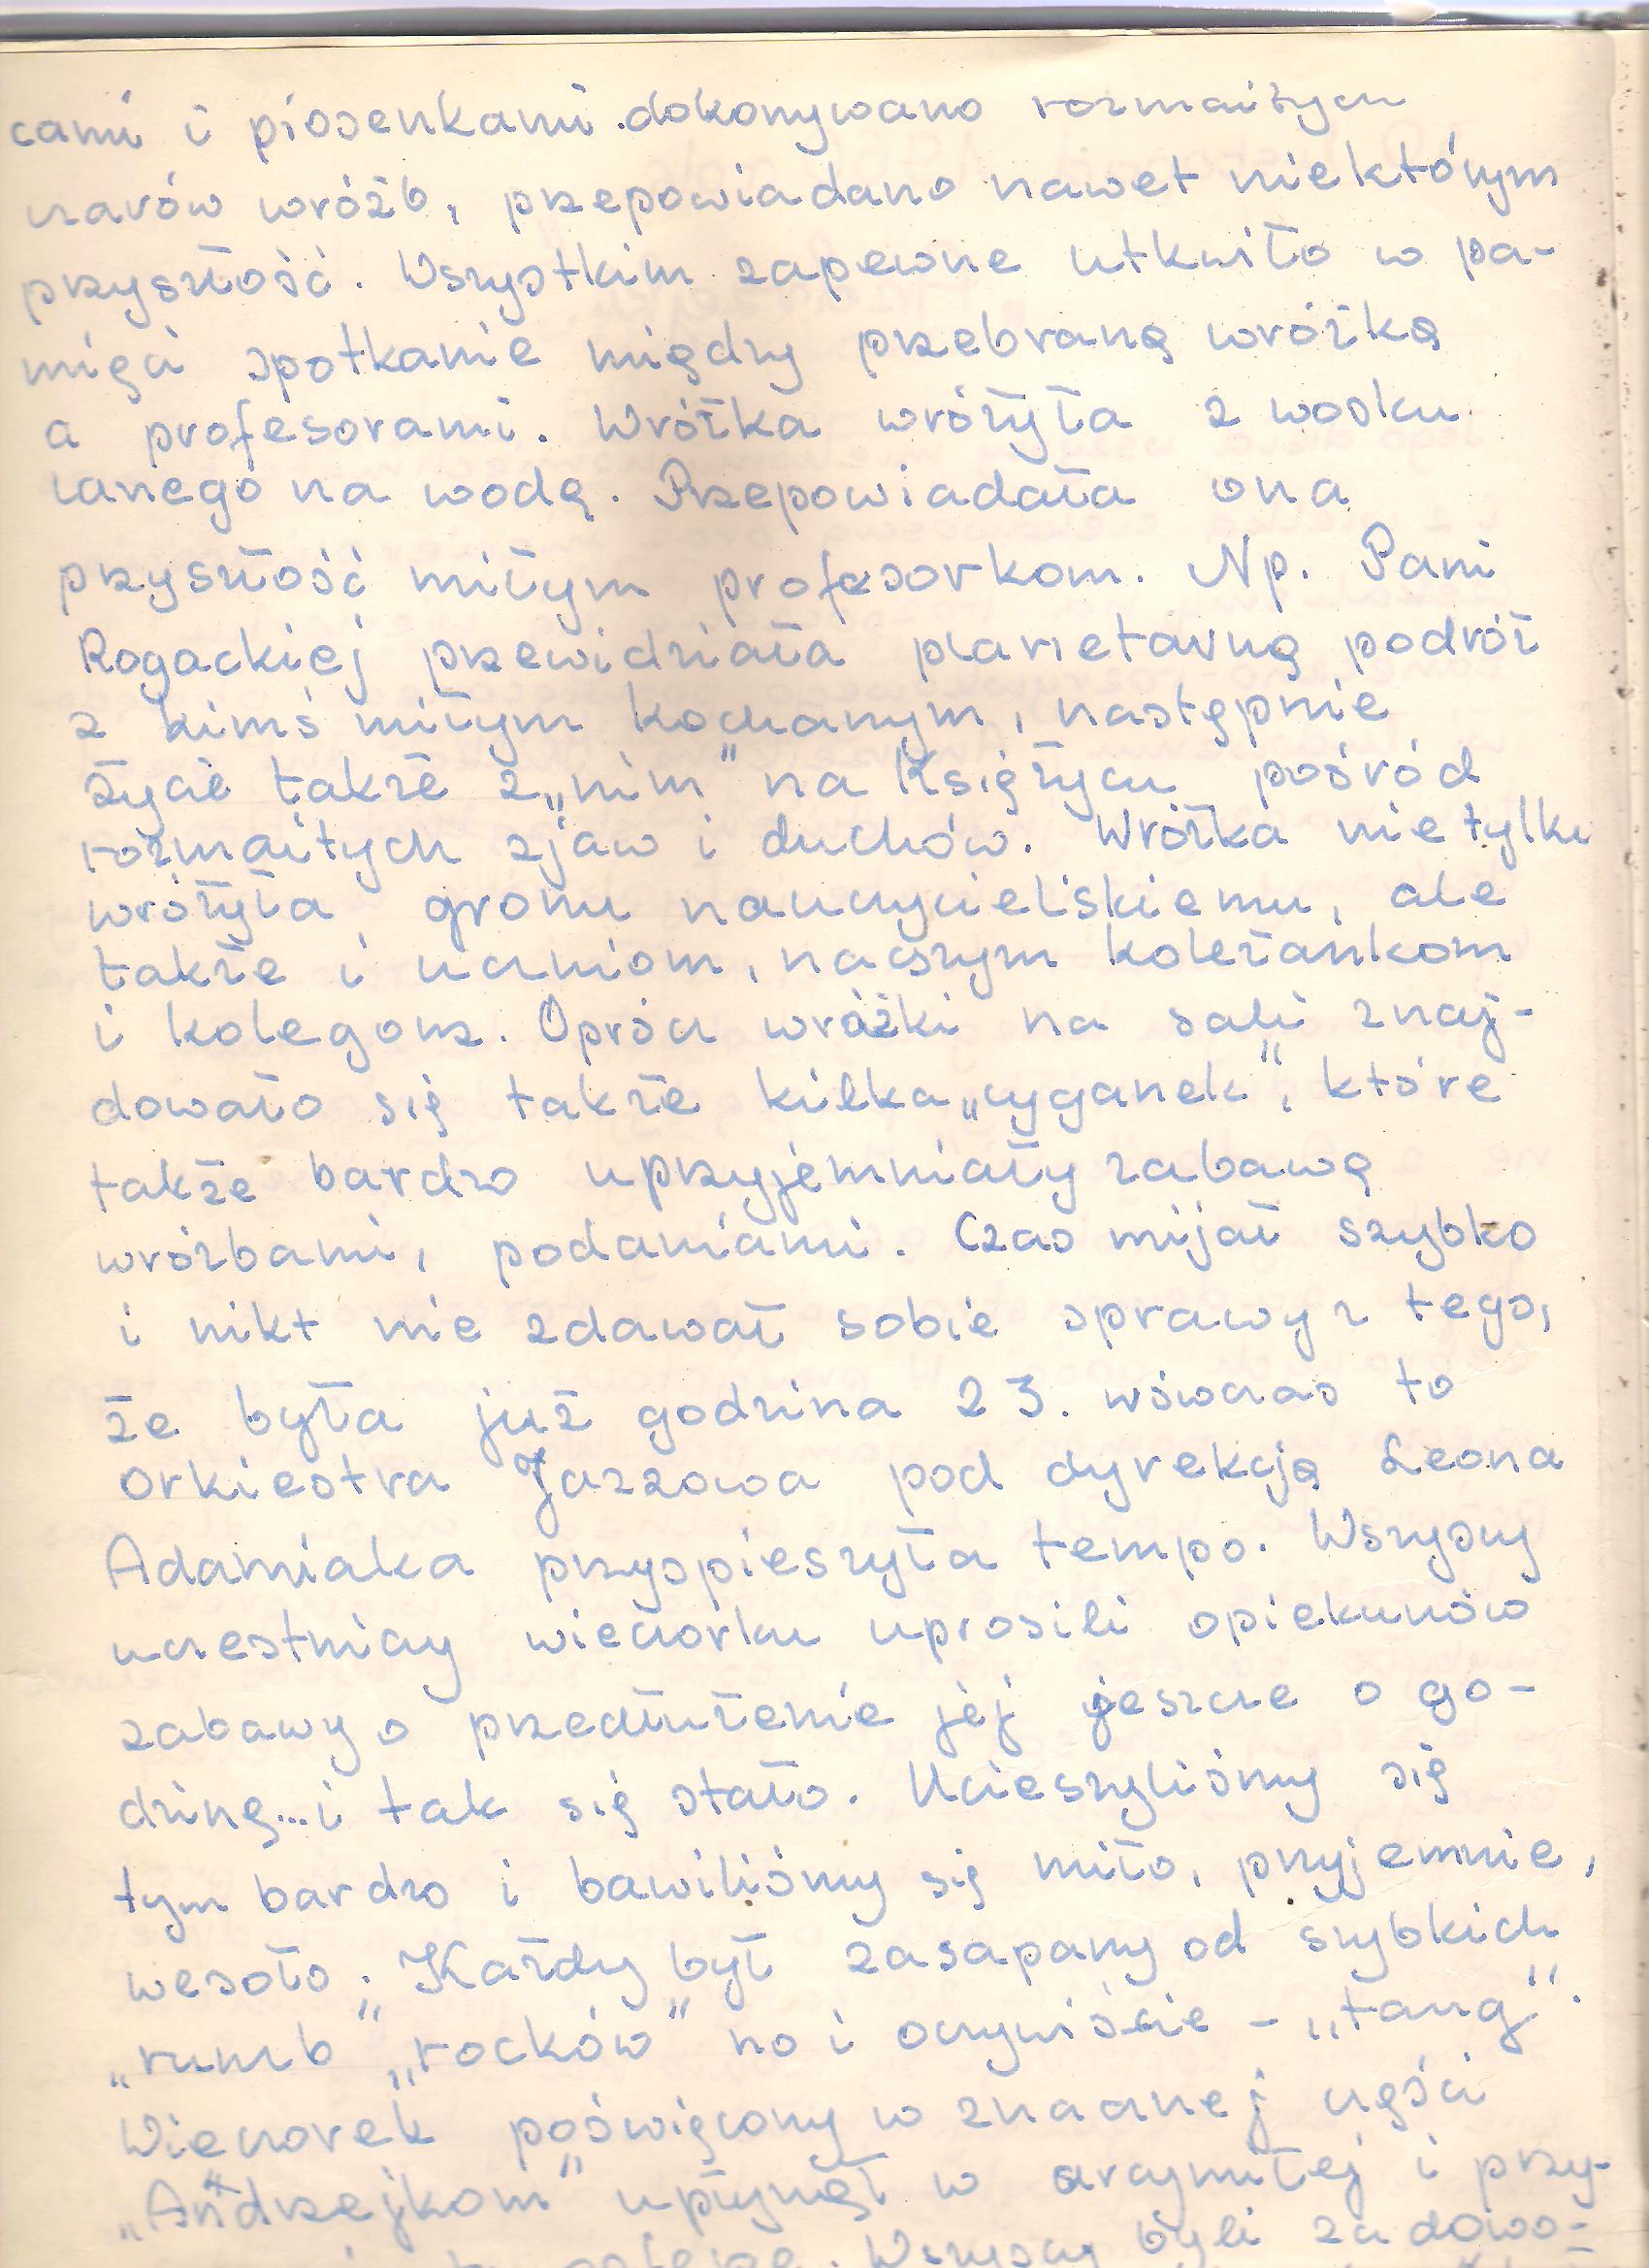 cami i piosenkami dokonywano rozmaitych
czarów wróżb, przepowiadano nawet niektórym
przyszłość. Wszystkim zapewne utkwiło w pa-
mięci spotkanie między przebraną wróżką
a profesorami. Wróżka wróżyła z wosku
lanego na wodę. Przepowiadała ona
przyszłość miłym profesorkom. Np. Pani
Rogackiej przewidziała planetarną podróż
z kimś miłym kochanym, następnie
życie także z „nim" na Księżycu pośród
rozmaitych zjaw i duchów. Wróżka nie tylko
wróżyła gronu nauczycielskiemu, ale
także i uczniom, naszym koleżankom
i kolegom. Oprócz wróżki na sali znaj-
dowało się także kilka „cyganek", które
także bardzo uprzyjemniały zabawę
wróżbami, podaniami. Czas mijał szybko
i nikt nie zdawał sobie sprawy z tego,
że była już godzina 23. wówczas to
Orkiestra Jazzowa pod dyrekcją Leona
Adamiaka przyspieszyła tempo. Wszyscy
uczestnicy wieczorku uprosili opiekunów
zabawy o przedłużenie jej jeszcze o go-
dzinę...i tak się stało. Ucieszyliśmy się
tym bardzo i bawiliśmy się miło, przyjemnie,
wesoło. Każdy był zasapany od szybkich
„rumb" „rocków" no i oczywiście - „tang".
Wieczorek poświęcony w znacznej części
„Andrzejkom" upłynął w arcymiłej i przy-
Wszyscy byli zadowo-